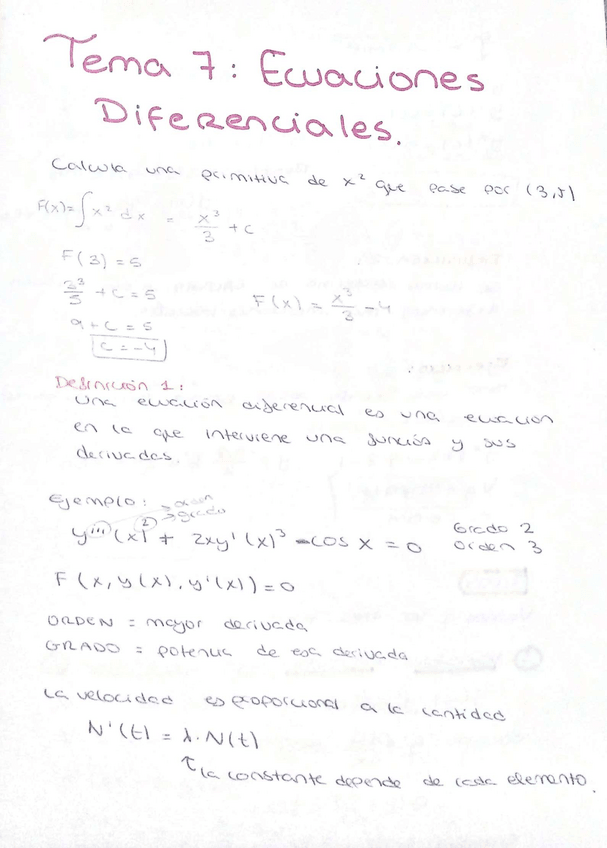 Tema 7: Ecuaciones
Diferenciales.
Calcula una primitiva de x² que pase por (3,5)
F(x)=∫x² dx = x³/3 + C
F(3) = 5
3³/3 + C = 5
9 + C = 5
F(x) = x³/3 - 4
C = -4
Definición 1:
Una ecuación diferencial es una ecuación
en la que interviene una función y sus
derivadas.
Ejemplo:
→ orden
→ grado
y'''(x)² + 2xy'(x)³ - cos x = 0
Grado 2
Orden 3
F(x, y(x), y'(x)) = 0
ORDEN = mayor derivada
GRADO = potencia de esa derivada
La velocidad es proporcional a la cantidad
N'(t) = λ·N(t)
la constante depende de cada elemento.